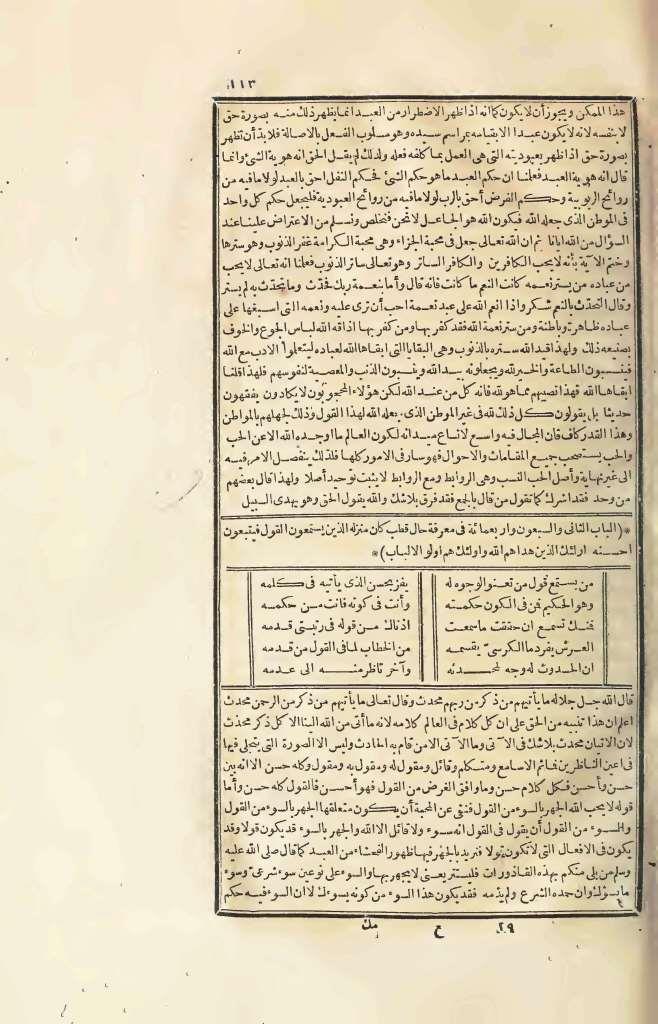 ١١٣
هذا الممكن ويجوز أن لا يكون كما انه اذا ظهر الاضطرار من العبد انما يظهر ذلك منه بصورة حق
لا بنفسه لانه لا يكون عبدا الا بقيامه بمراسم سيده وهو مسلوب الفعل بالاصالة فلا بد أن تظهر
بصورة حق اذا ظهر بعبوديته التى هى العمل بما كلفه فعله ولذلك لم يقل الحق انه هوية الشئ وانما
قال انه هوية العبد فعلنا ان حكم العبد ما هو حكم الشئ فحكم النفل احق بالعبد لولا ما فيه من
روائح الربوبية وحكم الفرض أحق بالرب لولا ما فيه من روائح العبودية فليجعل حكم كل واحد
فى الموطن الذى جعله الله فيكون الله هو الجاعل لا نحن فنخلص ونسلم من الاعتراض علينا عند
السؤال من الله ايانا ثم ان الله تعالى جعل فى محبة الجزاء وهى محبة الكرامة غفر الذنوب وهو سترها
وختم الآية بأنه لا يحب الكافرين والكافر الساتر وهو تعالى ساتر الذنوب فعلنا انه تعالى لا يحب
من عباده من يستر نعمه كانت النعم ما كانت فانه قال وأما بنعمة ربك فحدث وما يتحدث به لم يستر
وقال التحدث بالنعم شكر واذا انعم الله على عبد نعمة احب أن ترى عليه ونعمه التى اسبغها على
عباده ظاهرة وباطنة ومن ستر نعمة الله فقد كفر بها ومن كفر بها اذاقه الله لباس الجوع والخوف
بصنيعه ذلك ولهذا اقيد الله ستره بالذنوب وهى البقايا التى ابقاها الله لعباده ليتعلموا الادب مع الله
فينسبون الطاعة والخير لله ويجعلونه بيد الله وينسبون الذنب والمعصية لنفوسهم فلهذا قلنا
ابقاها الله فهذا نصيبهم مما هو لله فانه كل من عند الله لكن هؤلاء المحجوبون لا يكادون يفقهون
حديثا بل يقولون كل ذلك لله فى غير الموطن الذى جعله الله لهذا القول وذلك لجهلهم بالمواطن
وهذا القدر كاف فان المجال فيه واسع لاتساع ميدانه لكون العالم ما اوجده الله الا عن الحب
والحب يستصحب جميع المقامات والاحوال فهو سار فى الامور كلها فلذلك يتفصل الامر فيه
الى غير نهاية وأصل الحب النسب وهى الروابط ومع الروابط لا يثبت توحيد أصلا ولهذا قال بعضهم
من وحد فقد اشرك كما تقول من قال بالجمع فقد فرق بلا شك والله يقول الحق وهو يهدى السبيل
*(الباب الثانى والسبعون واربعمائة فى معرفة حال قطب كان منزله الذين يستمعون القول فيتبعون
احسنه اولئك الذين هداهم الله واولئك هم اولو الالباب)*
من يستمع قول من تعنو الوجوه له يفز بحسن الذى يأتيه فى كلمه
وهو الحكيم فمن فى الكون حكمته وأنت فى كونه فانت من حكمه
عنك تسمع ان حققت ما سمعت اذنالك من قوله فى رتبتى قدمه
العرش يفرد ما الكرسى يقسمه من الخطاب لما فى القول من قدمه
ان الحدوث له وجه لمحدثه وآخر ناظر منه الى عدمه
قال الله جل جلاله ما يأتيهم من ذكر من ربهم محدث وقال تعالى ما يأتيهم من ذكر من الرحمن محدث
اعلم ان هذا تنبيه من الحق على ان كل كلام فى العالم كلامه لانه ما أتى من الله الينا الا كل ذكر محدث
لان الاتيان محدث بلا شك فى الآتى وما الآتى الا من قام به الحادث وليس الا الصورة التى يتجلى فيها
فى اعين الناظرين فما ثم الا سامع ومتكلم وقائل ومقول له ومقول به ومقول وكله حسن الا انه بين
حسن وأحسن فكل كلام حسن وما وافق الغرض من القول فهو أحسن فالقول كله حسن وأما
قوله لا يحب الله الجهر بالسوء من القول فنفى عن المحبة أن يكون متعلقها الجهر بالسوء من القول
والسوء من القول أن يقول فى القول انه سوء ولا قائل الا الله والجهر بالسوء قد يكون قولا وقد
يكون فى الافعال التى لا تكون قولا فنريد بالجهر فيها ظهور الفحشاء من العبد كما قال صلى الله عليه
وسلم من بلى منكم بهذه القاذورات فليستتر يعنى لا يجهر بها والسوء على نوعين سوء شرعى وسوء
ما يسوءك وان حمده الشرع ولم يذمه فقد يكون هذا السوء من كونه يسوءك لا ان السوء فيه حكم
٢٩ ح مك